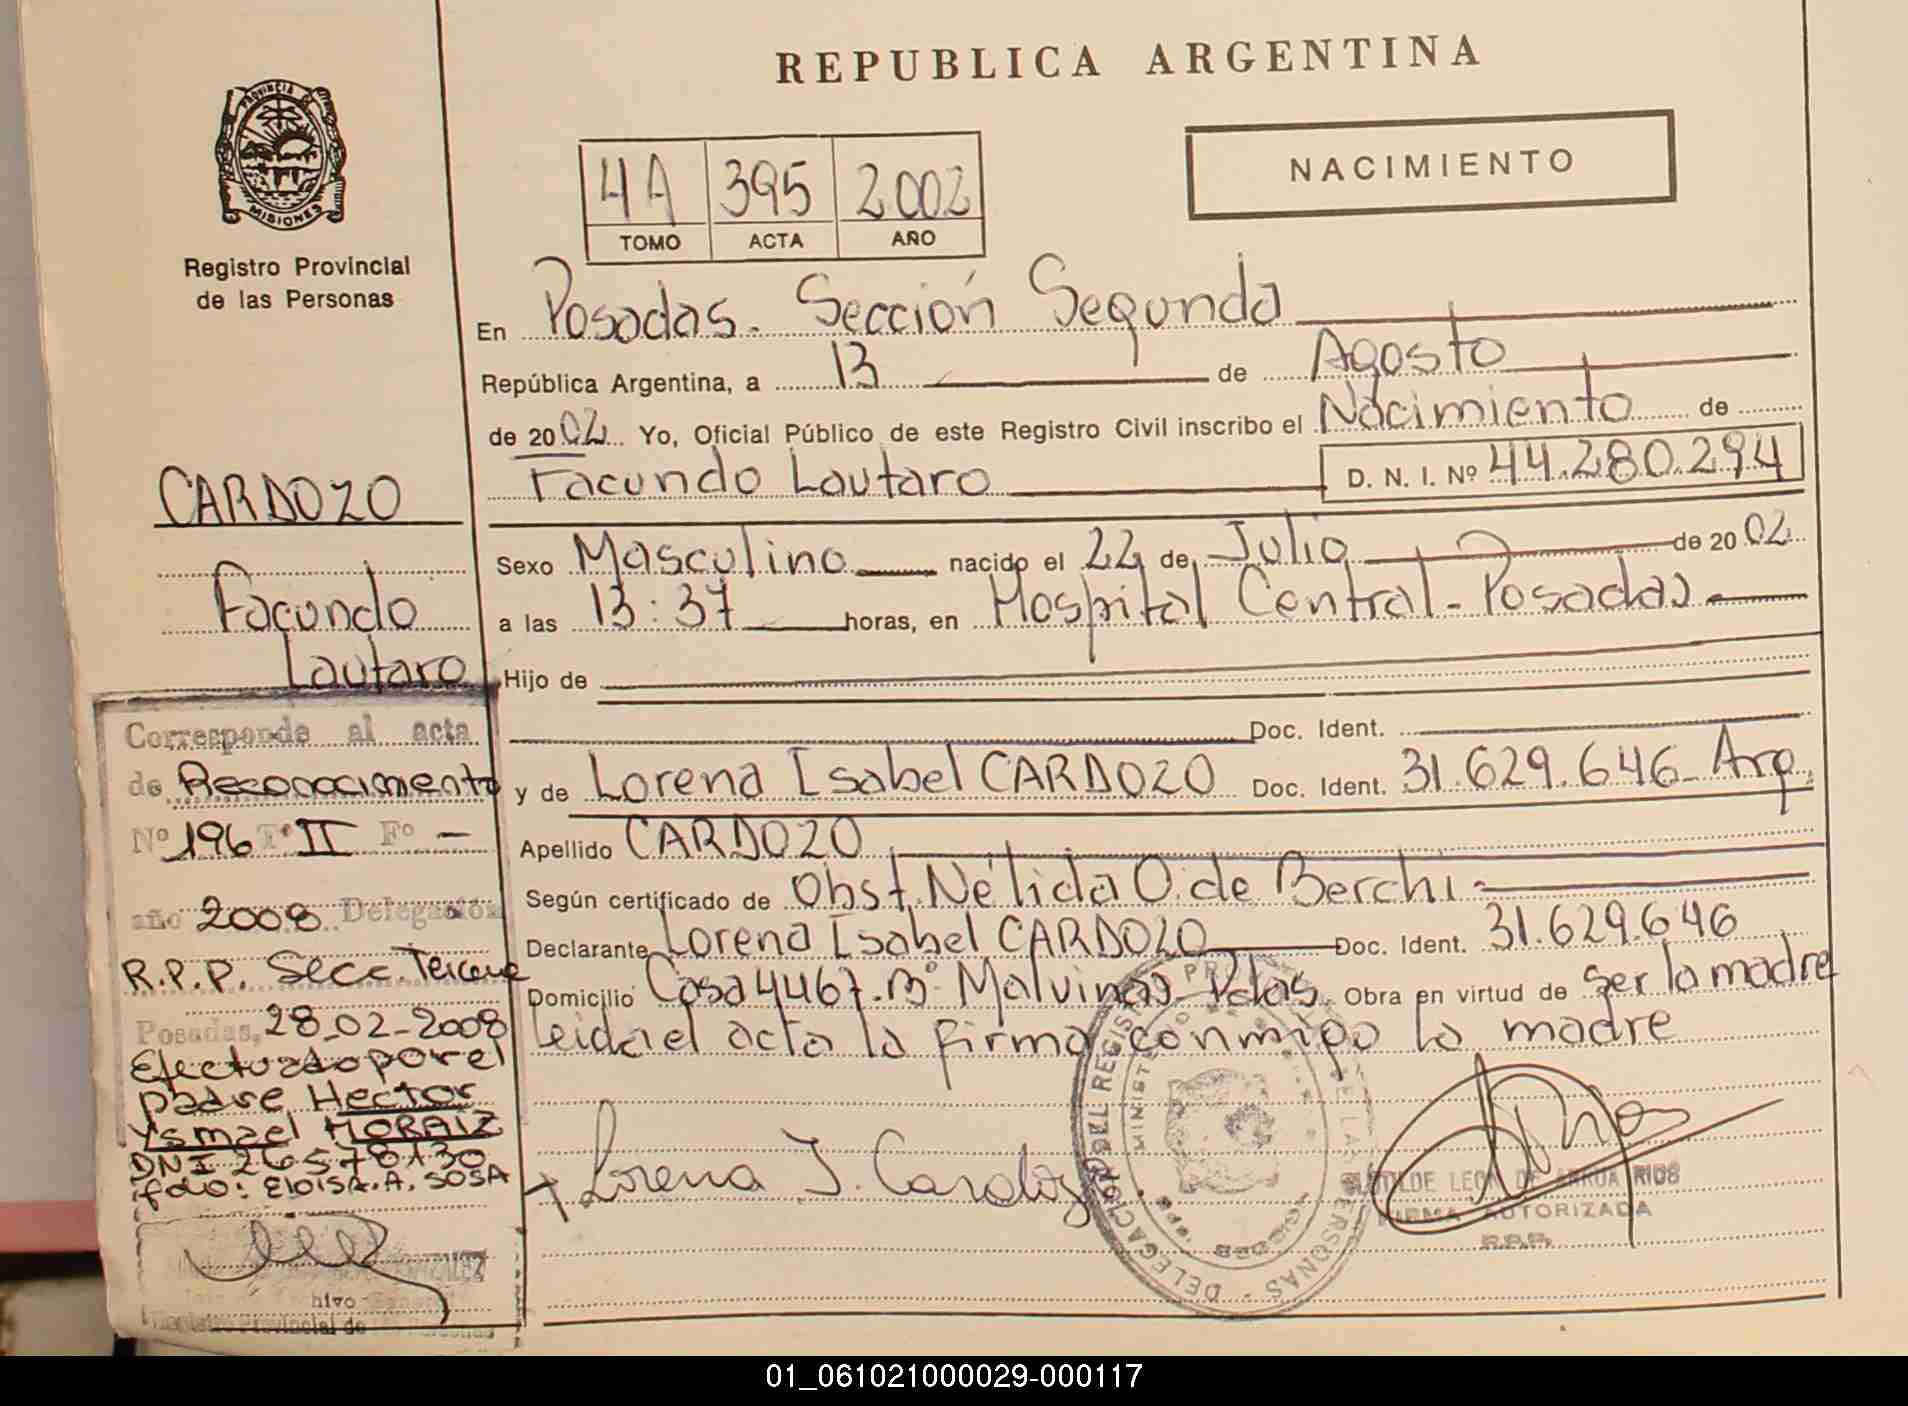 REPUBLICA ARGENTINA
PROVINCIA DE
MISIONES
Registro Provincial
de las Personas
4A 395 2002
TOMO ACTA AÑO
NACIMIENTO
En Posadas. Sección Segunda
República Argentina, a 13 de Agosto
de 2002 Yo, Oficial Público de este Registro Civil inscribo el Nacimiento de
Facundo Lautaro D. N. I. Nº 44.280.294
Sexo Masculino nacido el 22 de Julio de 2002
a las 13:37 horas, en Hospital Central - Posadas
Hijo de
Doc. Ident.
y de Lorena Isabel CARDOZO Doc. Ident. 31.629.646 Arg.
Apellido CARDOZO
Según certificado de Obst. Nélida O. de Berchi
Declarante Lorena Isabel CARDOZO Doc. Ident. 31.629.646
Domicilio Casa 4467. Bº Malvinas Pdas. Obra en virtud de ser la madre
leida el acta la firma conmigo la madre
Lorena I. Cardozo
LEON DE ARRUA RIOS
FIRMA AUTORIZADA
R.P.P.
CARDOZO
Facundo
Lautaro
Corresponde al acta
de Reconocimiento
Nº 196 Tº II Fº -
año 2008 Delegación
R.P.P. Secc. Tercera
Posadas, 28-02-2008
Efectuado por el
padre Hector
Ysmael MORAIZ
DNI 26578130
fdo: ELOISA. A. SOSA
Registro Provincial de las Personas
01_061021000029-000117